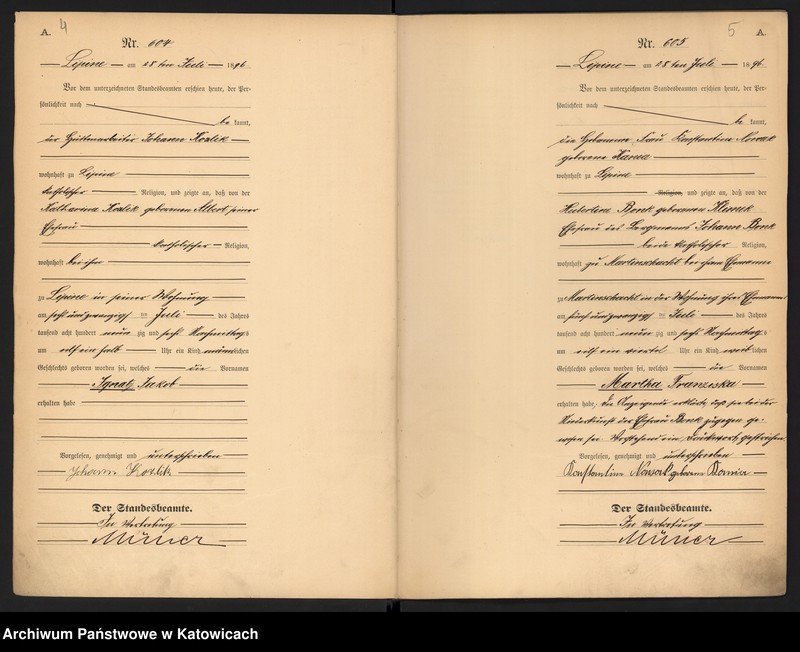 4
A.
Nr. 604
Lipine am 28 ten Juli 1896
Vor dem unterzeichneten Standesbeamten erschien heute, der Per-
sönlichkeit nach
be kannt,
der Hüttenarbeiter Johann Kozlik
wohnhaft zu Lipine
katholischer Religion, und zeigte an, daß von der
Katharina Kozlik geborenen Albert seiner
Ehefrau
katholischer Religion,
wohnhaft bei ihm
zu Lipine in seiner Wohnung
am sechsundzwanzigsten Juli des Jahres
tausend acht hundert neun zig und sechs Nachmittags
um elf ein halb Uhr ein Kind männlichen
Geschlechts geboren worden sei, welches die Vornamen
Ignatz Jakob
erhalten habe
Vorgelesen, genehmigt und unterschrieben
Johann Kozlik
Der Standesbeamte.
In Vertretung
5
A.
Nr. 605
Lipine am 28 ten Juli 1896
Vor dem unterzeichneten Standesbeamten erschien heute, der Per-
sönlichkeit nach
be kannt,
die Hebamme Frau Konstantine Nowak
geborene
wohnhaft zu Lipine
Religion, und zeigte an, daß von der
Hubertine Bonk geborenen Klimek
Ehefrau des Bergmanns Johann Bonk
beide katholischer Religion,
wohnhaft zu Martinschacht bei ihrem Ehemanne
zu Martinschacht in der Wohnung ihres Ehemannes
am fünfundzwanzigsten Juli des Jahres
tausend acht hundert neun zig und sechs Nachmittags
um elf ein viertel Uhr ein Kind weiblichen
Geschlechts geboren worden sei, welches die Vornamen
Martha Franziska
erhalten habe. Die Anzeigende erklärte, daß sie bei der
Niederkunft der Ehefrau Bonk zugegen ge-
wesen sei. Vorstehend ein Druckwort gestrichen.
Vorgelesen, genehmigt und unterschrieben
Konstantine Nowak geborene
Der Standesbeamte.
In Vertretung
Archiwum Państwowe w Katowicach